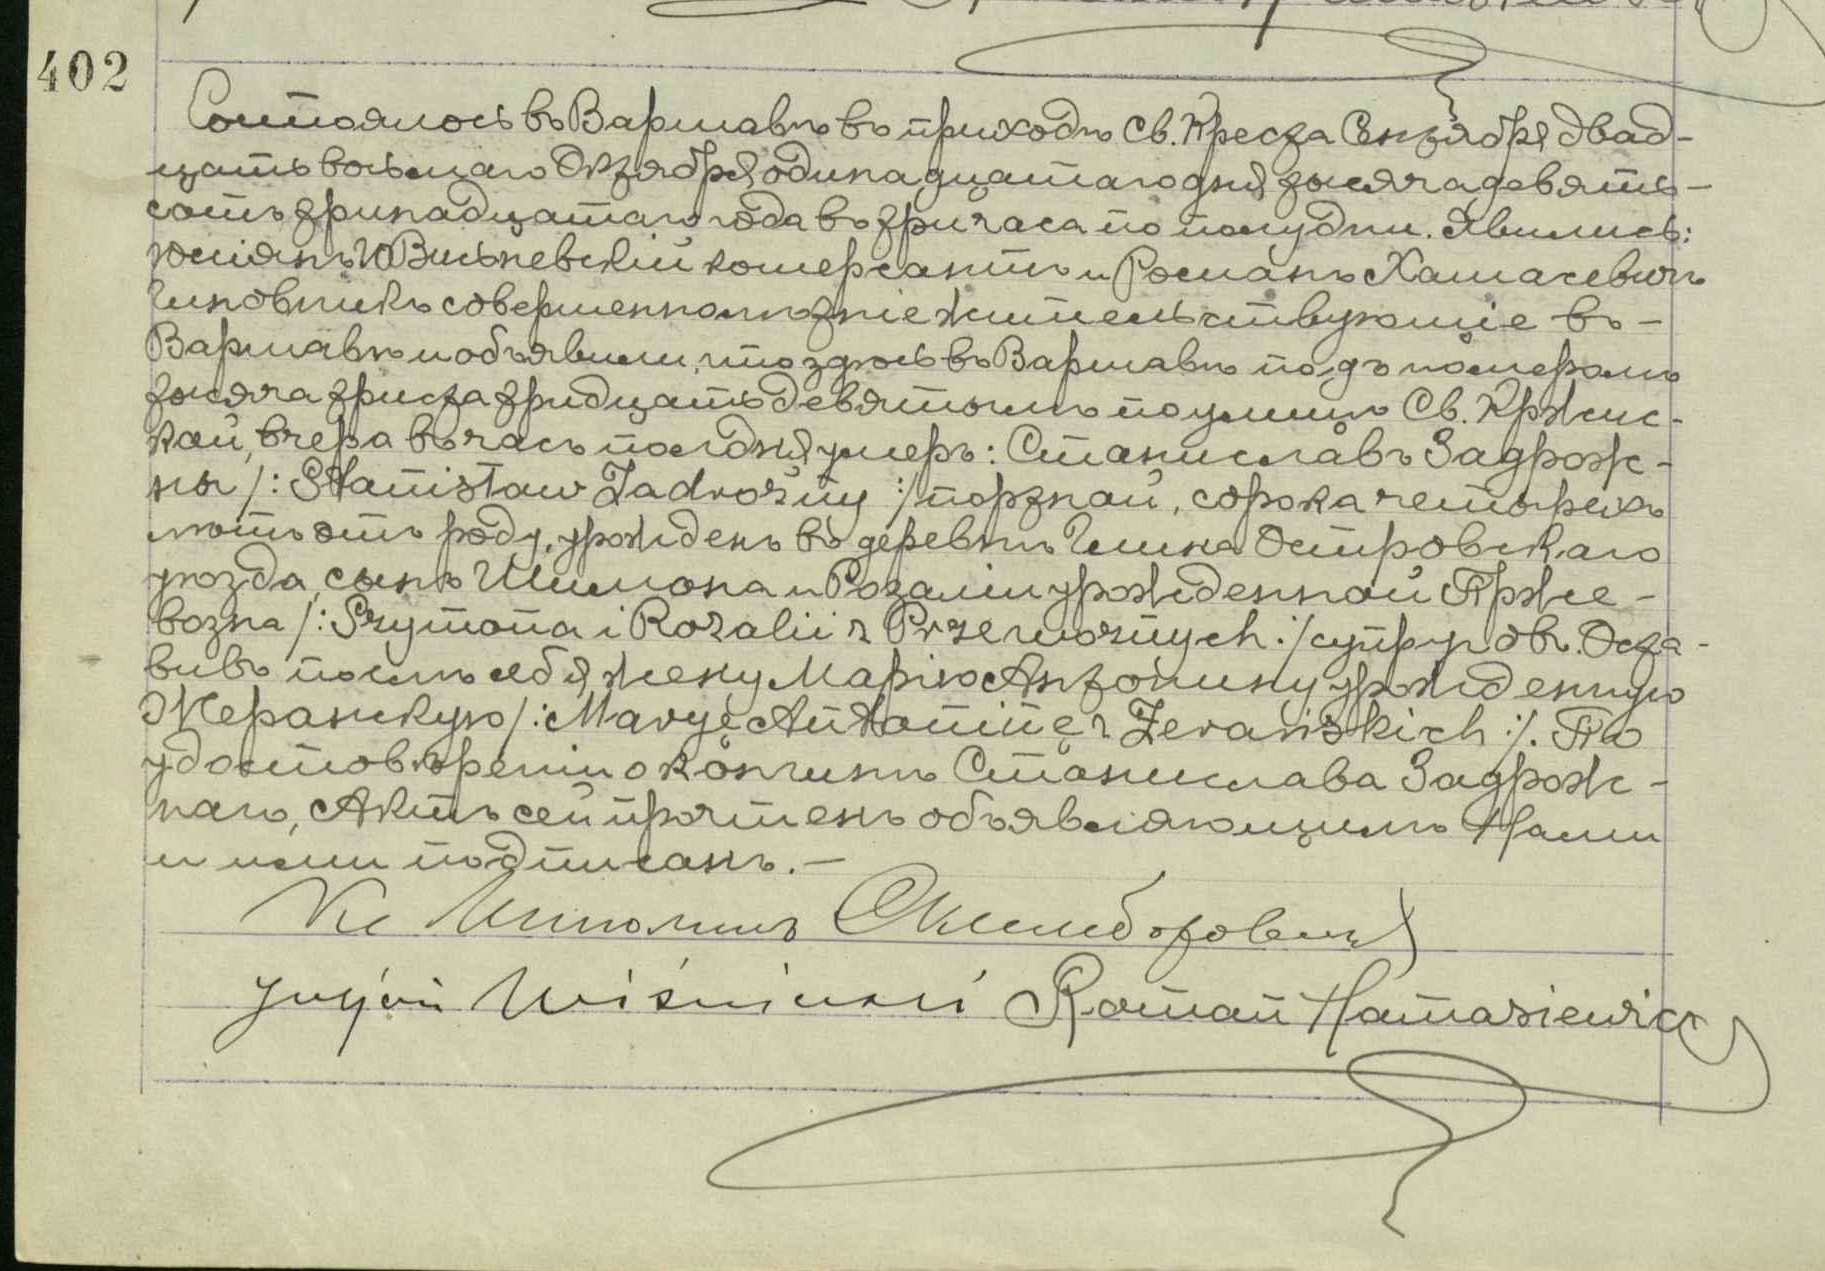 402
Состоялось въ Варшавѣ въ приходѣ Св. Креста Сентября двад-
цать восьмаго Октября одинадцатаго дня тысяча девять-
сотъ тринадцатаго года въ три часа по полудни. Явились:
Юліянъ Висьневскій комерсантъ и Романъ Хамасевичъ
чиновникъ совершеннолѣтніе жительствующіе въ -
Варшавѣ и объявили, что здѣсь въ Варшавѣ подъ номеромъ
тысяча триста тридцать девятымъ по улицѣ Св. Кржис-
кой, вчера въ часъ по полдня умеръ: Станиславъ Задрож-
ны /: Stanisław Zadrożny :/ портной, сорока четырехъ
лѣтъ отъ роду, урожденъ въ деревнѣ Островскаго
уѣзда, сынъ Шимона и Розаліи урожденной Прже-
возна /: Szymona i Rozalii z Przewoźnych :/ супруговъ. Оста-
вивъ послѣ себя жену Марію Антонину урожденную
Жеранскую /: Maryę Antoninę z Żerańskich :/. По
удостовѣреніи о кончинѣ Станислава Задрож-
наго, Актъ сей прочтенъ объявляющимъ Нами
и ими подписанъ. -
Кс
Wiśniewski Roman Hamasiewicz